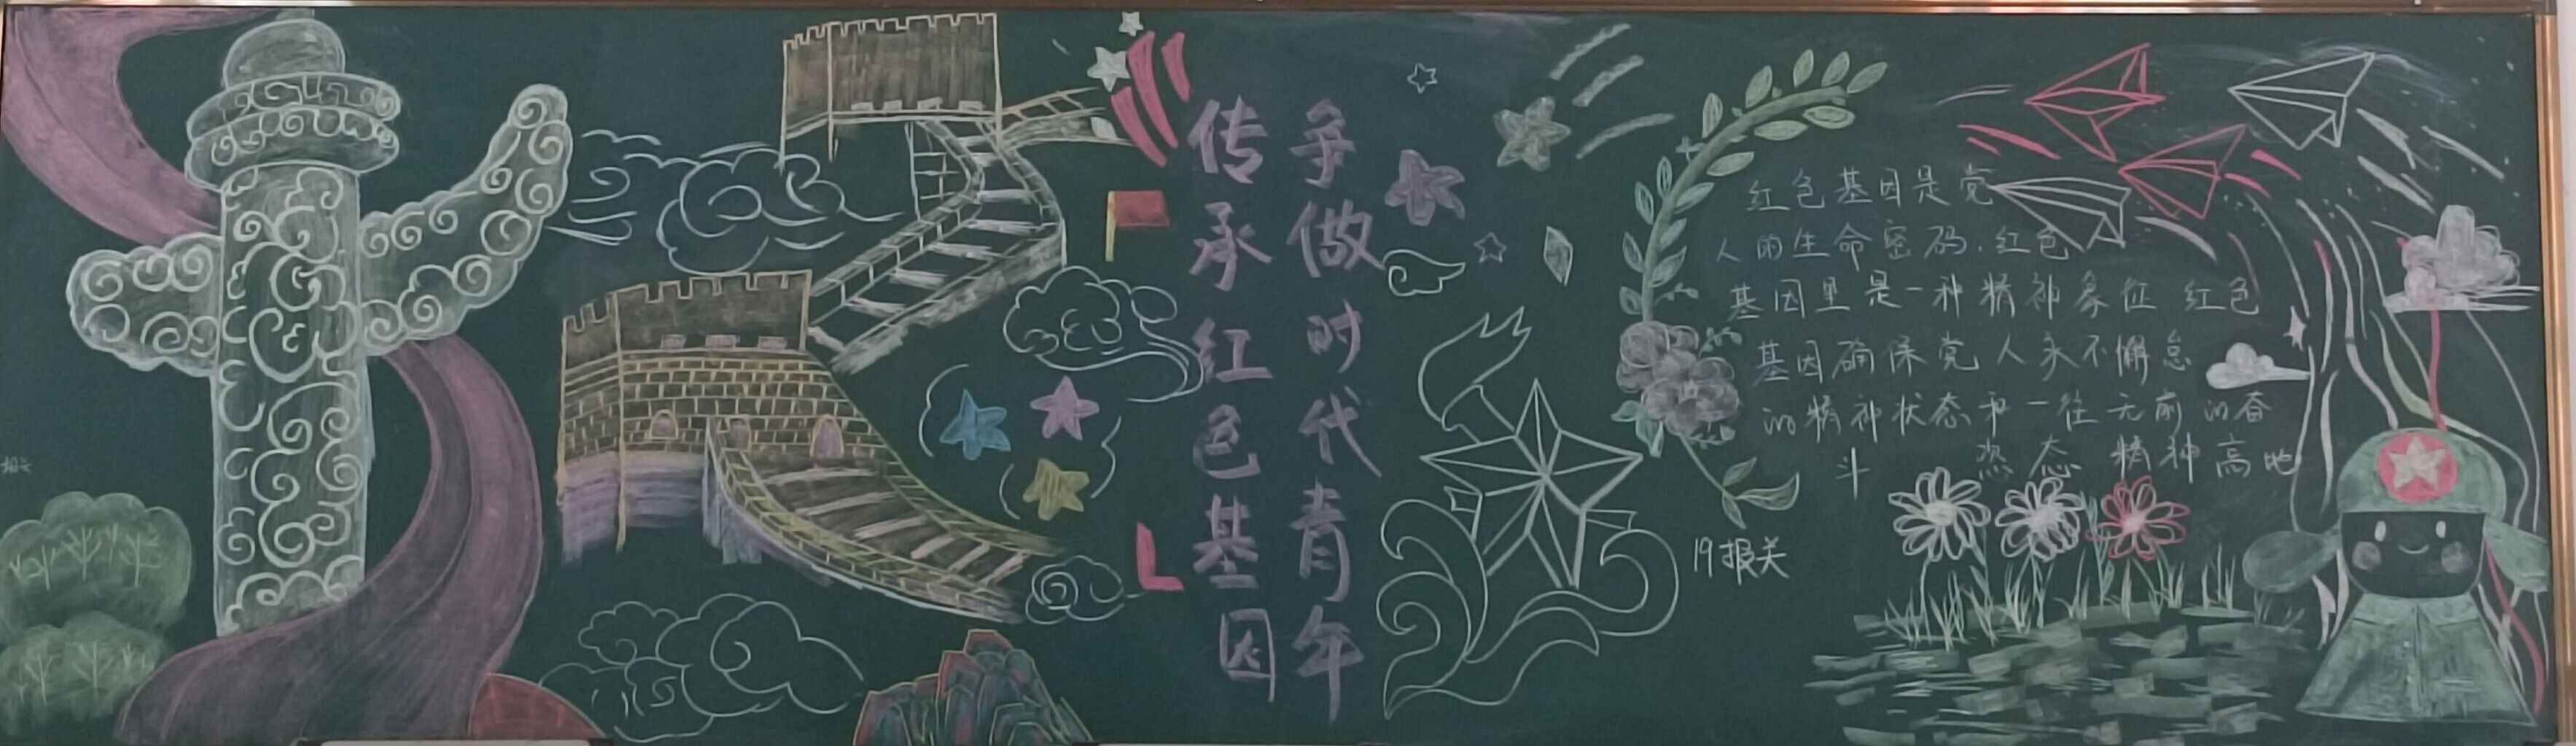 传承红色基因
争做时代青年
红色基因是党
人的生命密码.红色
基因里是一种精神象征 红色
基因确保党人永不懈怠
的精神状态和一往无前的奋
斗 姿态 精神高地
19报关
报关